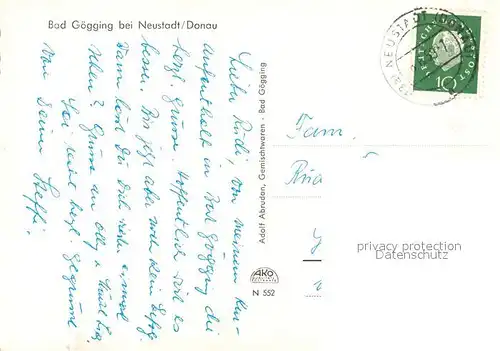 Bad Gögging bei Neustadt/Donau
Lieber Rudi, von meinem Kur-
aufenthalt in Bad Gögging die
herzl. Grüsse. Hoffentlich wird es
besser. Bis jetzt aber noch kein Erfolg.
Wann lässt Du Dich wieder einmal
sehen? Grüsse an Olly u.
Sei recht herzl. gegrüsst
von Deiner Steffi.
Adolf Abrudan, Gemischtwaren - Bad Gögging
AKO
N 552
NEUSTADT
DEUTSCHE BUNDESPOST
10
Fam.
privacy protection
Datenschutz